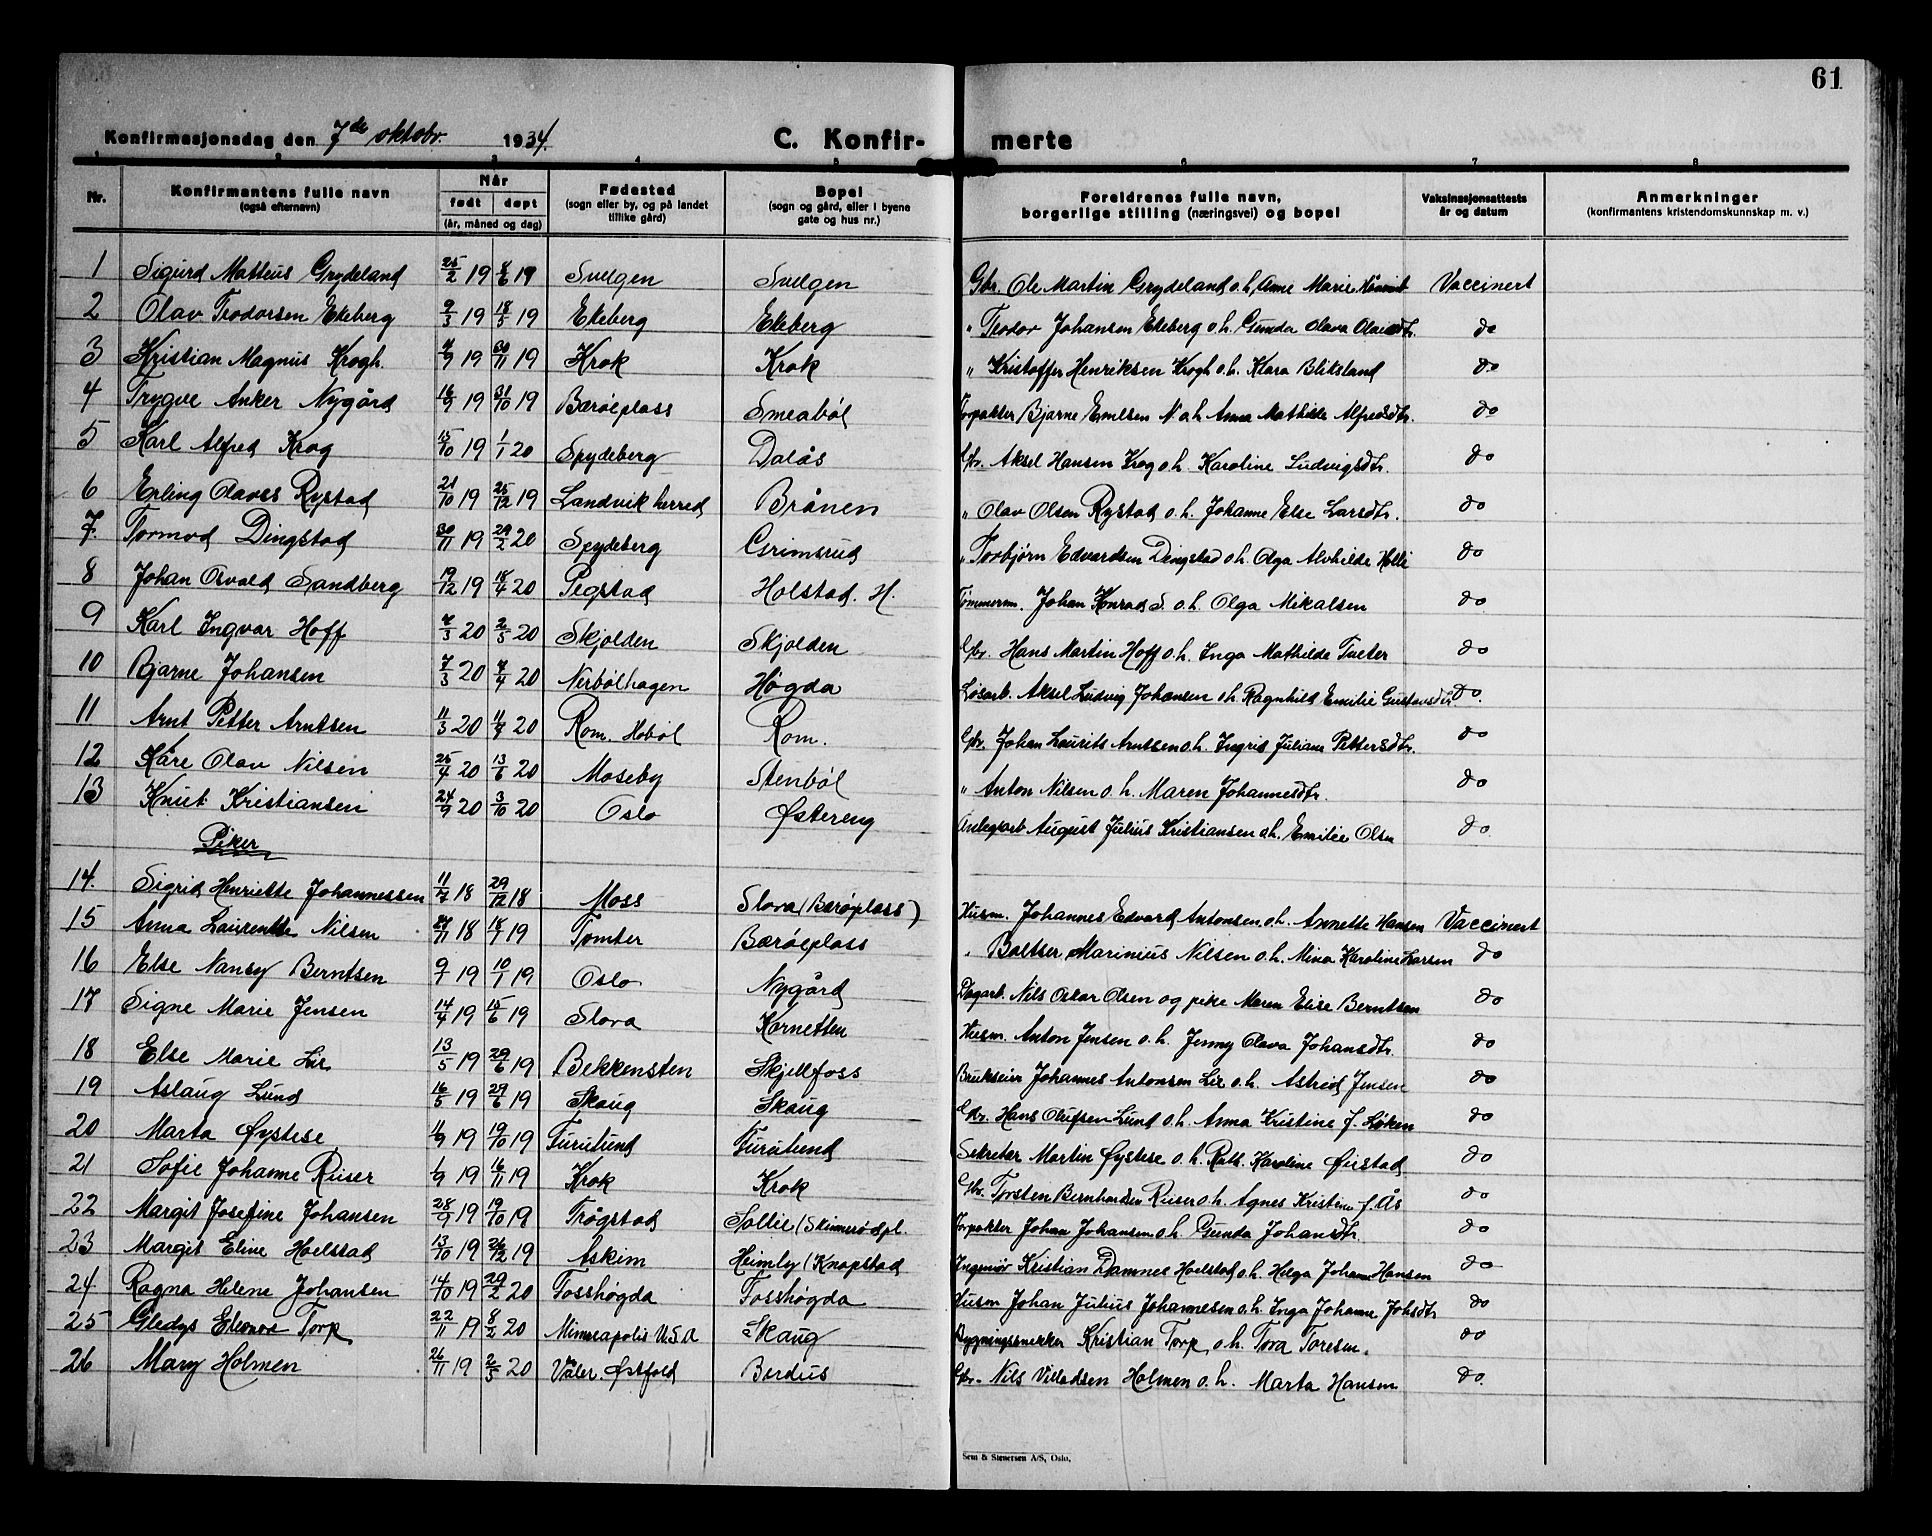 61
Konfirmasjonsdag den 7de oktobr. 1934. C. Konfir- merte
1 2 3 4 5 6 7 8
Nr. Konfirmantens fulle navn (også efternavn) Når født døpt (år, måned og dag) Fødestad (sogn eller by, og på landet tillike gård) Bopel (sogn og gård, eller i byene gate og hus nr.) Foreldrenes fulle navn, borgerlige stilling (næringsvei) og bopel Vaksinasjonsattests år og datum Anmerkninger (konfirmantens kristendomskunnskap m. v.)
1 Sigurd Matteus Grydeland 25/2 19 8/6 19 Svelgen Svelgen Gbr. Ole Martin Grydeland o.h. Anne Marie Vaccinert
2 Olav Teodorsen Ekeberg 9/3 19 18/5 19 Ekeberg Ekeberg " Teodor Johansen Ekeberg o.h. Gunda Olava Olaisdtr. do
3 Kristian Magnus Krogh. 4/9 19 30/11 19 Krok Krok " Kristoffer Henriksen Krogh o.h. Klara Bliksland do
4 Trygve Anker Nygård 16/9 19 31/10 19 Barøeplass Smeabøl Forpakter Bjarne Emilsen N. o.h. Anna Mathilde Alfredsdtr. do
5 Karl Alfred Krog 15/10 19 1/1 20 Spydeberg Dalås Gbr. Aksel Hansen Krog o.h. Karoline Ludvigsdtr. do
6 Erling Olavss Rystad 21/10 19 25/12 19 Landvik herred Brånen " Olav Olsen Rystad o.h. Johanne Else Larsdtr. do
7. Tormod Dingstad 30/11 19 29/2 20 Spydeberg Grimsrud " Torbjørn Edvardsen Dingstad o.h. Olga Alvhilde Holli do
8 Johan Osvald Sandberg 19/12 19 18/4 20 Pegstad Holstad. H. Tømmerm. Johan Konrad S. o.h. Olga Mikalsen do
9 Karl Ingvar Hoff 4/3 20 2/5 20 Skjolden Skjolden Gbr. Hans Martin Hoff o.h. Inga Mathilde Tveter do
10 Bjarne Johansen 7/3 20 4/4 20 Nerbølhagen Høgda Løsarb. Aksel Ludvig Johansen o.h. Ragnhild Emilie Gustavsdtr do.
11 Arnt Petter Arntsen 11/3 20 11/4 20 Rom. Hobøl Rom. Gbr. Johan Laurits Arntsen o.h. Ingris Juliane Pettersdtr. do
12 Kåre Olav Nilsen 25/4 20 13/6 20 Moseby Stenbøl " Anton Nilsen o.h. Maren Johannesdtr. do
13 Knut Kristiansen 24/9 20 3/10 20 Oslo Østereng Anlegsarb. August Julius Kristiansen o.h. Emilie Olsen do.
Piker
14. Sigrid Henriette Johannessen 11/7 18 29/12 18 Moss Slora (Barøeplass) Husm. Johannes Edvard Antonsen o.h. Annette Hansen Vaccinert
15 Anna Laurentse Nilsen 27/11 18 18/1 19 Tomter Barøeplass " Baltser Marinius Nilsen o.h. Mina Karoline Larsen do
16 Else Nancy Berntsen 9/1 19 10/1 19 Oslo Nygård Dagarb. Nils Oskar Olsen og pike Maren Elise Berntsen do
17 Signe Marie Jensen 14/4 19 15/6 19 Slora Kornetten Husm. Anton Jensen o.h. Jenny Olava Johansdtr. do
18 Else Marie Lie 13/5 19 29/6 19 Bekkensten Skjellfoss Brukseier Johannes Antonsen Lie o.h. Astrid Jensen do
19 Aslaug Lund 16/5 19 29/6 19 Skaug Skaug Gbr. Hans Olufsen Lund o.h. Anna Kristine f. Løken do
20 Marta Øystese 11/9 19 19/10 19 Furulund Furulund Sekretær Martin Øystese o.h. Ruth Karoline Øristad do
21 Sofie Johanne Riiser 1/9 19 16/11 19 Krok Krok Gbr. Torsten Bernhardsen Riiser o.h. Agnes Kristine f. Ås do
22 Margit Josefine Johansen 28/9 19 19/10 19 Trøgstad Sollie (Skinnerødpl. Forpakter Johan Johansen o.h. Gunda Johansdtr. do
23 Margit Eline Hoelstad 13/10 19 26/12 19 Askim Heimly (Knapstad Ingeniør Kristian Damnes Hoelstad o.h. Helga Johanne Hansen do
24 Ragna Helene Johansen 14/10 19 29/2 20 Fosshøgda Fosshøgda Husm Johan Julius Johannesen o.h. Inga Johanne Johsdtr do
25 Gledys Eleonora Torp 22/11 19 8/2 20 Minneapolis U.S.A Skaug Bygningssnekker Kristian Torp o.h. Tora Toresen. do
26 Mary Holmen 26/11 19 2/5 20 Våler. Østfold Berdus Gbr. Nils Villadsen Holmen o.h. Marta Hansen do.
Sem & Stenersen A/S, Oslo.